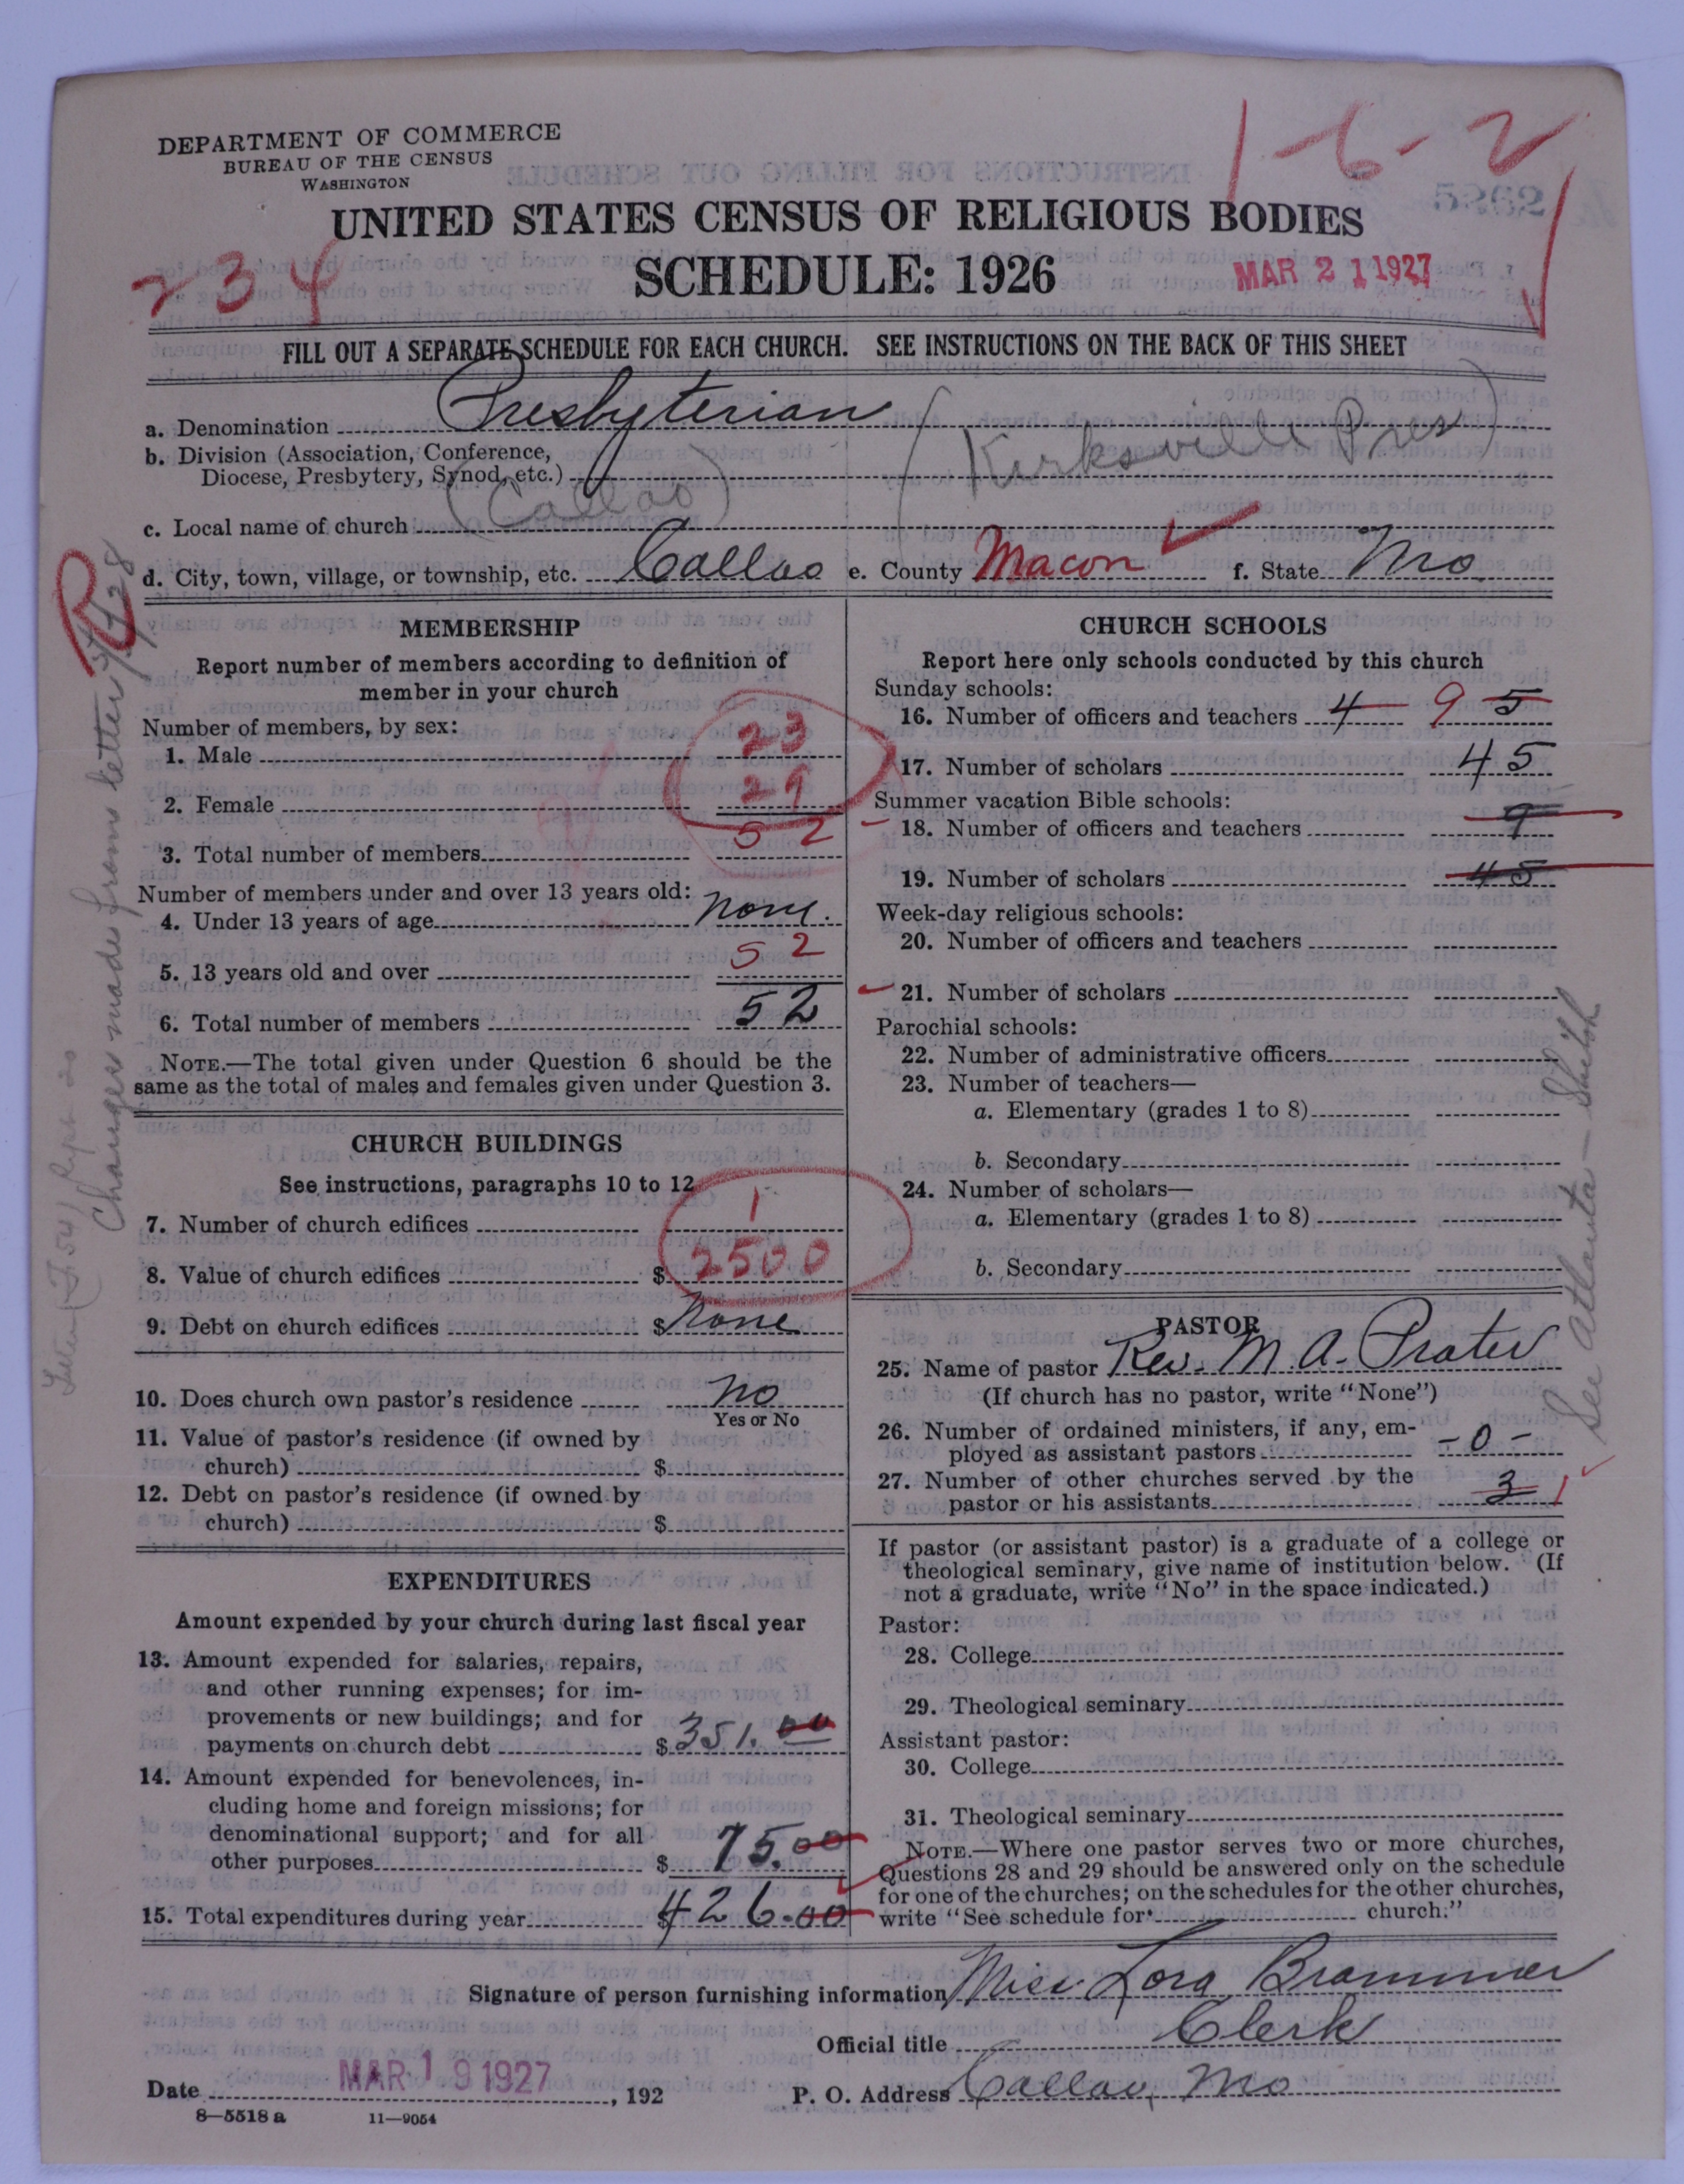 DEPARTMENT OF COMMERCE
BUREAU OF THE CENSUS
WASHINGTON
1-6-2
UNITED STATES CENSUS OF RELIGIOUS BODIES
234
SCHEDULE: 1926
MAR 21 1927
FILL OUT A SEPARATE SCHEDULE FOR EACH CHURCH. SEE INSTRUCTIONS ON THE BACK OF THIS SHEET
a. Denomination Presbyterian
b. Division (Association, Conference,
Diocese, Presbytery, Synod, etc.) (Kirksville Pres)
c. Local name of church (Callao)
d. City, town, village, or township, etc. Callao e. County Macon f. State Mo
R
Changes made from letter
MEMBERSHIP
Report number of members according to definition of
member in your church
Number of members, by sex:
1. Male 23
2. Female 29
3. Total number of members 52
Number of members under and over 13 years old:
4. Under 13 years of age none.
5. 13 years old and over 52
6. Total number of members 52
NOTE.—The total given under Question 6 should be the
same as the total of males and females given under Question 3.
CHURCH BUILDINGS
See instructions, paragraphs 10 to 12
7. Number of church edifices 1
8. Value of church edifices $ 2500
9. Debt on church edifices $ None
10. Does church own pastor's residence No
Yes or No
11. Value of pastor's residence (if owned by
church) $
12. Debt on pastor's residence (if owned by
church) $
EXPENDITURES
Amount expended by your church during last fiscal year
13. Amount expended for salaries, repairs,
and other running expenses; for im-
provements or new buildings; and for
payments on church debt $ 351.00
14. Amount expended for benevolences, in-
cluding home and foreign missions; for
denominational support; and for all
other purposes $ 75.00
15. Total expenditures during year $ 426.00
CHURCH SCHOOLS
Report here only schools conducted by this church
Sunday schools:
16. Number of officers and teachers 4 9 5
17. Number of scholars 45
Summer vacation Bible schools:
18. Number of officers and teachers 9
19. Number of scholars 45
Week-day religious schools:
20. Number of officers and teachers
21. Number of scholars
Parochial schools:
22. Number of administrative officers
23. Number of teachers—
a. Elementary (grades 1 to 8)
b. Secondary
24. Number of scholars—
a. Elementary (grades 1 to 8)
b. Secondary
PASTOR
25. Name of pastor Rev. M. A. Prater
(If church has no pastor, write "None")
26. Number of ordained ministers, if any, em-
ployed as assistant pastors -0-
27. Number of other churches served by the
pastor or his assistants 3 1
See Atlanta
If pastor (or assistant pastor) is a graduate of a college or
theological seminary, give name of institution below. (If
not a graduate, write "No" in the space indicated.)
Pastor:
28. College
29. Theological seminary
Assistant pastor:
30. College
31. Theological seminary
NOTE.—Where one pastor serves two or more churches,
Questions 28 and 29 should be answered only on the schedule
for one of the churches; on the schedules for the other churches,
write "See schedule for church."
Signature of person furnishing information Miss Lora Brammer
Official title Clerk
Date MAR 19 1927, 192
P. O. Address Callao, Mo
8—5518 a 11—9054